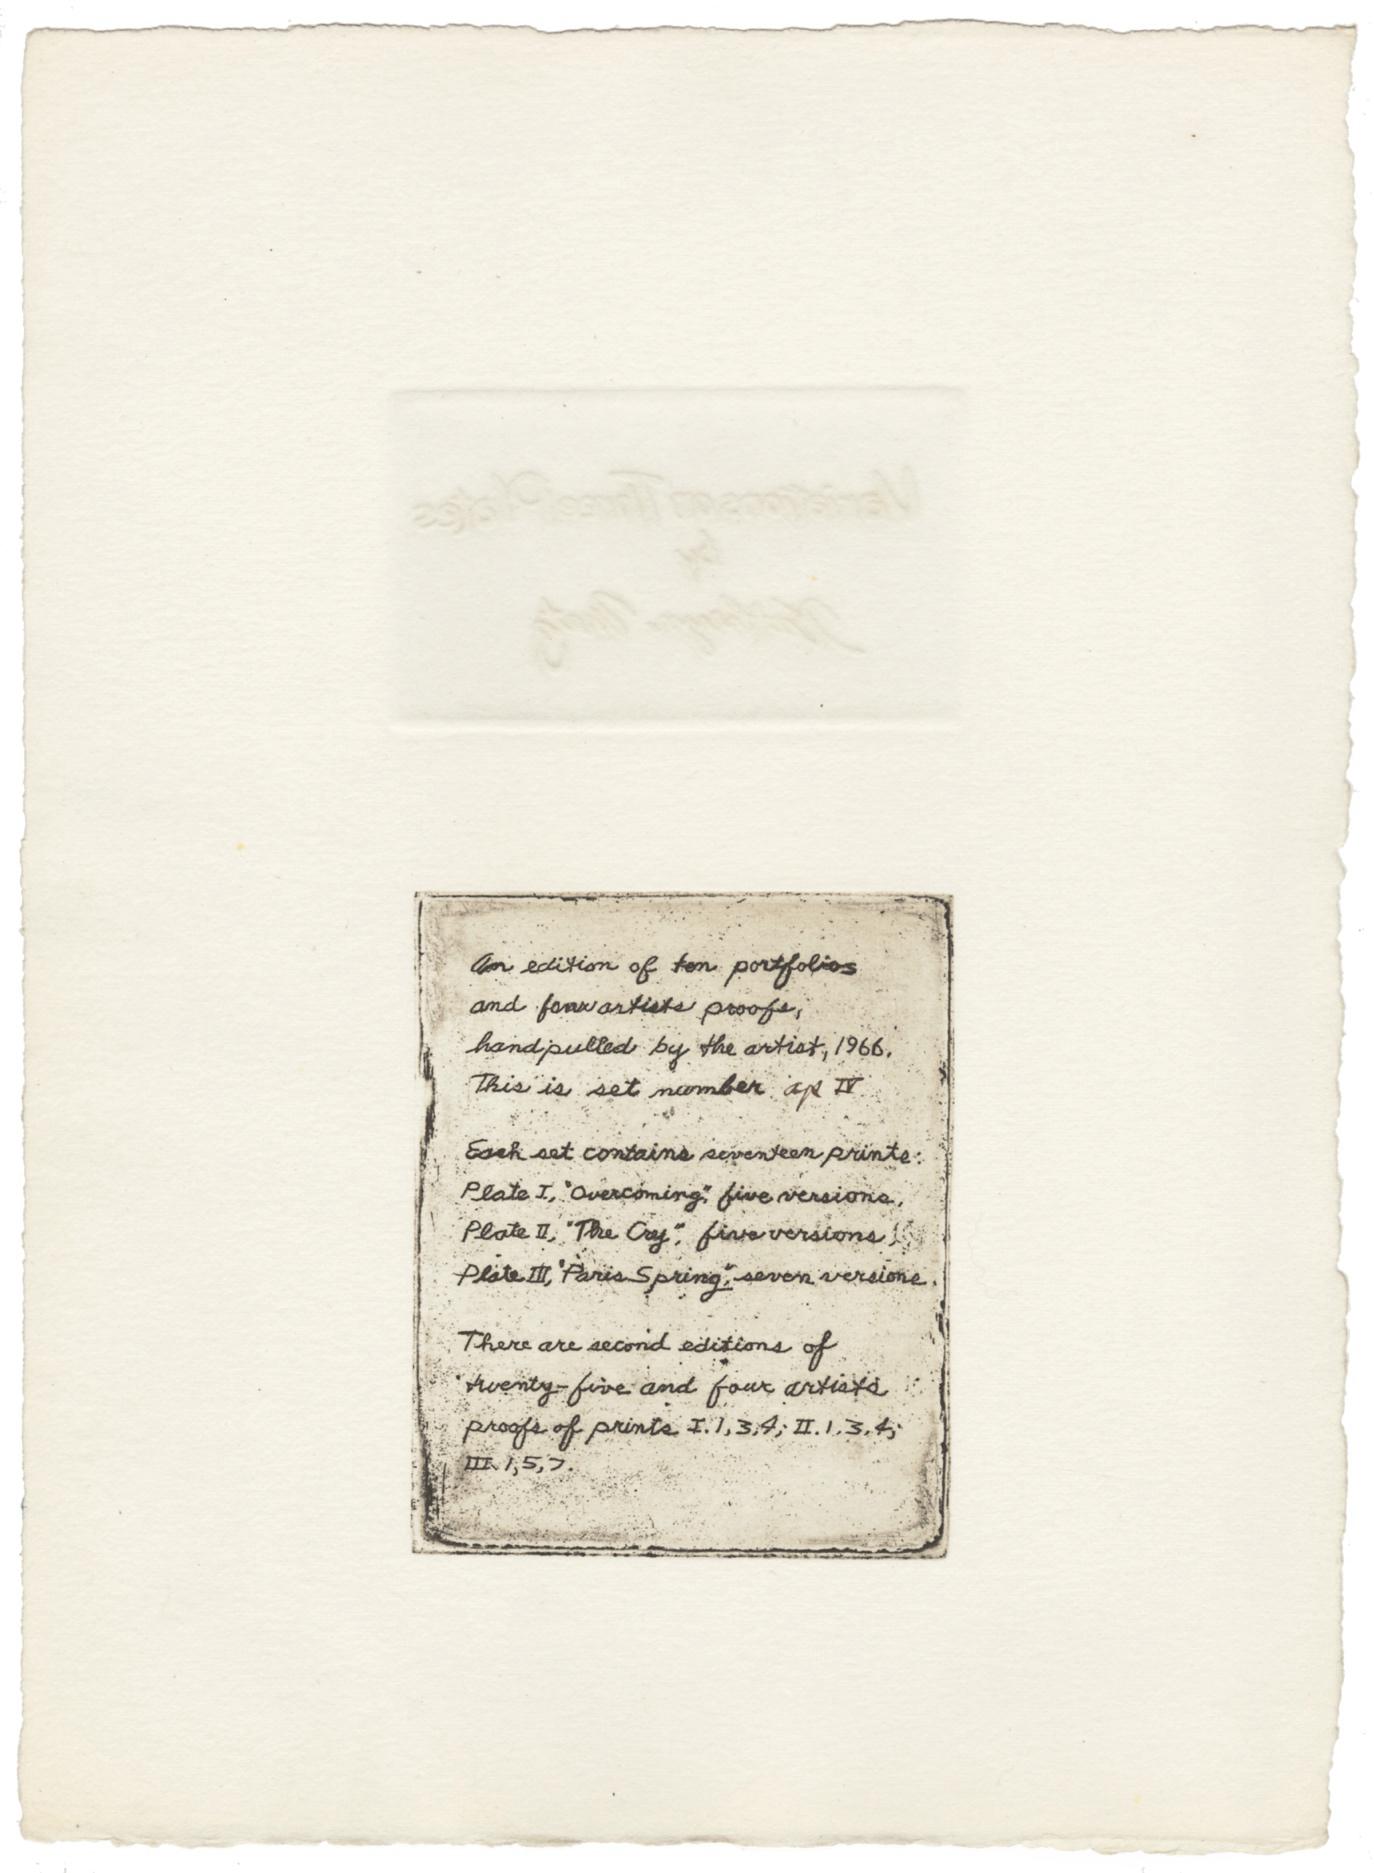 Variations on Three Plates
by
An edition of ten portfolios
and four artists proofs,
handpulled by the artist, 1966.
This is set number ap IV
Each set contains seventeen prints:
Plate I, "Overcoming", five versions.
Plate II, "The Cry", five versions,
Plate III, "Paris Spring", seven versions.
There are second editions of
twenty-five and four artists
proofs of prints I.1,3,4; II.1.3.4;
III.1,5,7.